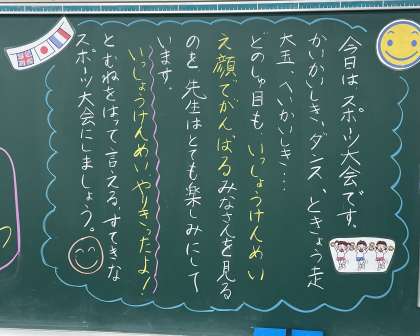 今日は、スポーツ大会です。
かいかいしき、ダンス、ときょう走
大玉、へいかいしき…
どのしゅ目も、いっしょうけんめい
え顔でがんばるみなさんを見る
のを、先生はとても楽しみにして
います。
いっしょうけんめいやりきったよ！
とむねをはって言える、すてきな
スポーツ大会にしましょう。